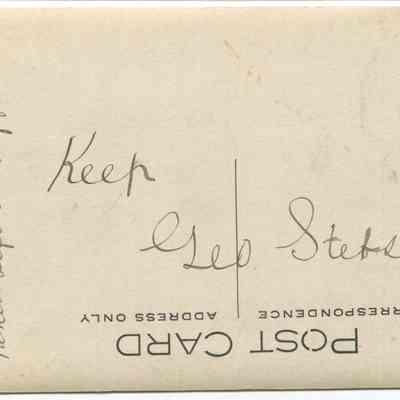 Keep
Geo Stebs
CORRESPONDENCE ADDRESS ONLY
POST CARD